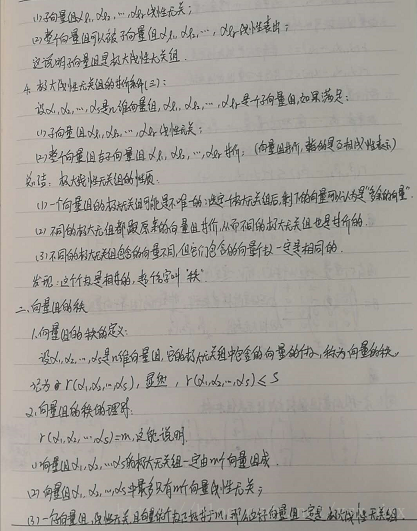 (1)子向量组αl₁, αl₂, …, αlr 线性无关;
(2)整个向量组可以被子向量组αl₁, αl₂, …, αlr 线性表出;
这说明子向量组是极大线性无关组.
4. 极大线性无关组的等价条件(三):
设α₁, α₂, …, αs是n维向量组, αl₁, αl₂, …, αlr是一个子向量组, 如果满足:
(1)子向量组αl₁, αl₂, …, αlr 线性无关;
(2)整个向量组与子向量组αl₁, αl₂, …, αlr等价; (向量组等价, 指的是可互相线性表示)
总结: 极大线性无关组的性质:
(1)一个向量组的极大无关组可能是不唯一的: 选定一个极大无关组后, 剩下的向量可以认为是"多余的向量".
(2)不同的极大无关组都跟原来的向量组等价, 从而不同的极大无关组也是等价的.
(3)不同的极大无关组包含的向量不同, 但它们包含的向量个数一定是相同的.
发现: 这个个数是相同的, 起个名字叫"秩"
二. 向量组的秩
1. 向量组的秩的定义:
设α₁, α₂, …, αs是n维向量组, 它的极大无关组中包含的向量的个数, 称为向量的秩,
记为 r(α₁, α₂, …, αs), 显然, r(α₁, α₂, …, αs) ≤ S
2. 向量组的秩的理解:
r(α₁, α₂, …, αs)=m, 这能说明
(1)向量组α₁, α₂, …, αs的极大无关组一定由m个向量组成.
(2)向量组α₁, α₂, …, αs中最多只有m个向量线性无关;
(3)一个子向量组, 线性无关且向量个数正好等于m, 那么这个子向量组一定是极大线性无关组